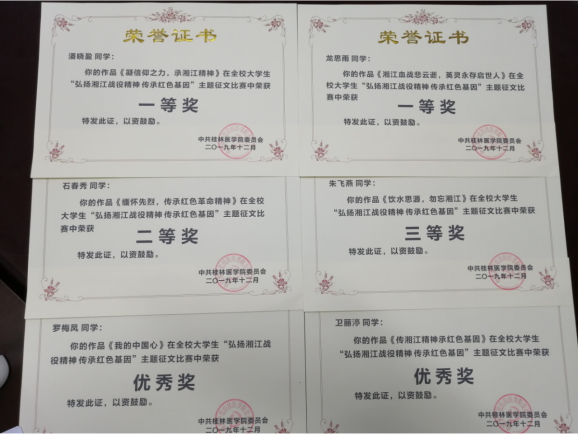 荣誉证书
潘晓盈 同学：
你的作品《凝信仰之力，承湘江精神》在全校大学生
“弘扬湘江战役精神 传承红色基因”主题征文比赛中荣获
一等奖
特发此证，以资鼓励。
中共桂林医学院委员会
二〇一九年十二月
荣誉证书
龙思雨 同学：
你的作品《湘江血战悲云逝，英灵永存启世人》在全
校大学生“弘扬湘江战役精神 传承红色基因”主题征文
比赛中荣获
一等奖
特发此证，以资鼓励。
中共桂林医学院委员会
二〇一九年十二月
石春秀 同学：
你的作品《缅怀先烈，传承红色革命精神》在全校
大学生“弘扬湘江战役精神 传承红色基因”主题征文比
赛中荣获
二等奖
特发此证，以资鼓励。
中共桂林医学院委员会
二〇一九年十二月
朱飞燕 同学：
你的作品《饮水思源，勿忘湘江》在全校大学生
“弘扬湘江战役精神 传承红色基因”主题征文比赛中荣获
三等奖
特发此证，以资鼓励。
中共桂林医学院委员会
二〇一九年十二月
罗梅凤 同学：
你的作品《我的中国心》在全校大学生“弘扬湘江战
役精神 传承红色基因”主题征文比赛中荣获
优秀奖
特发此证，以资鼓励。
中共桂林医学院委员会
二〇一九年十二月
卫丽渟 同学：
你的作品《传湘江精神承红色基因》在全校大学生
“弘扬湘江战役精神 传承红色基因”主题征文比赛中荣获
优秀奖
特发此证，以资鼓励。
中共桂林医学院委员会
二〇一九年十二月